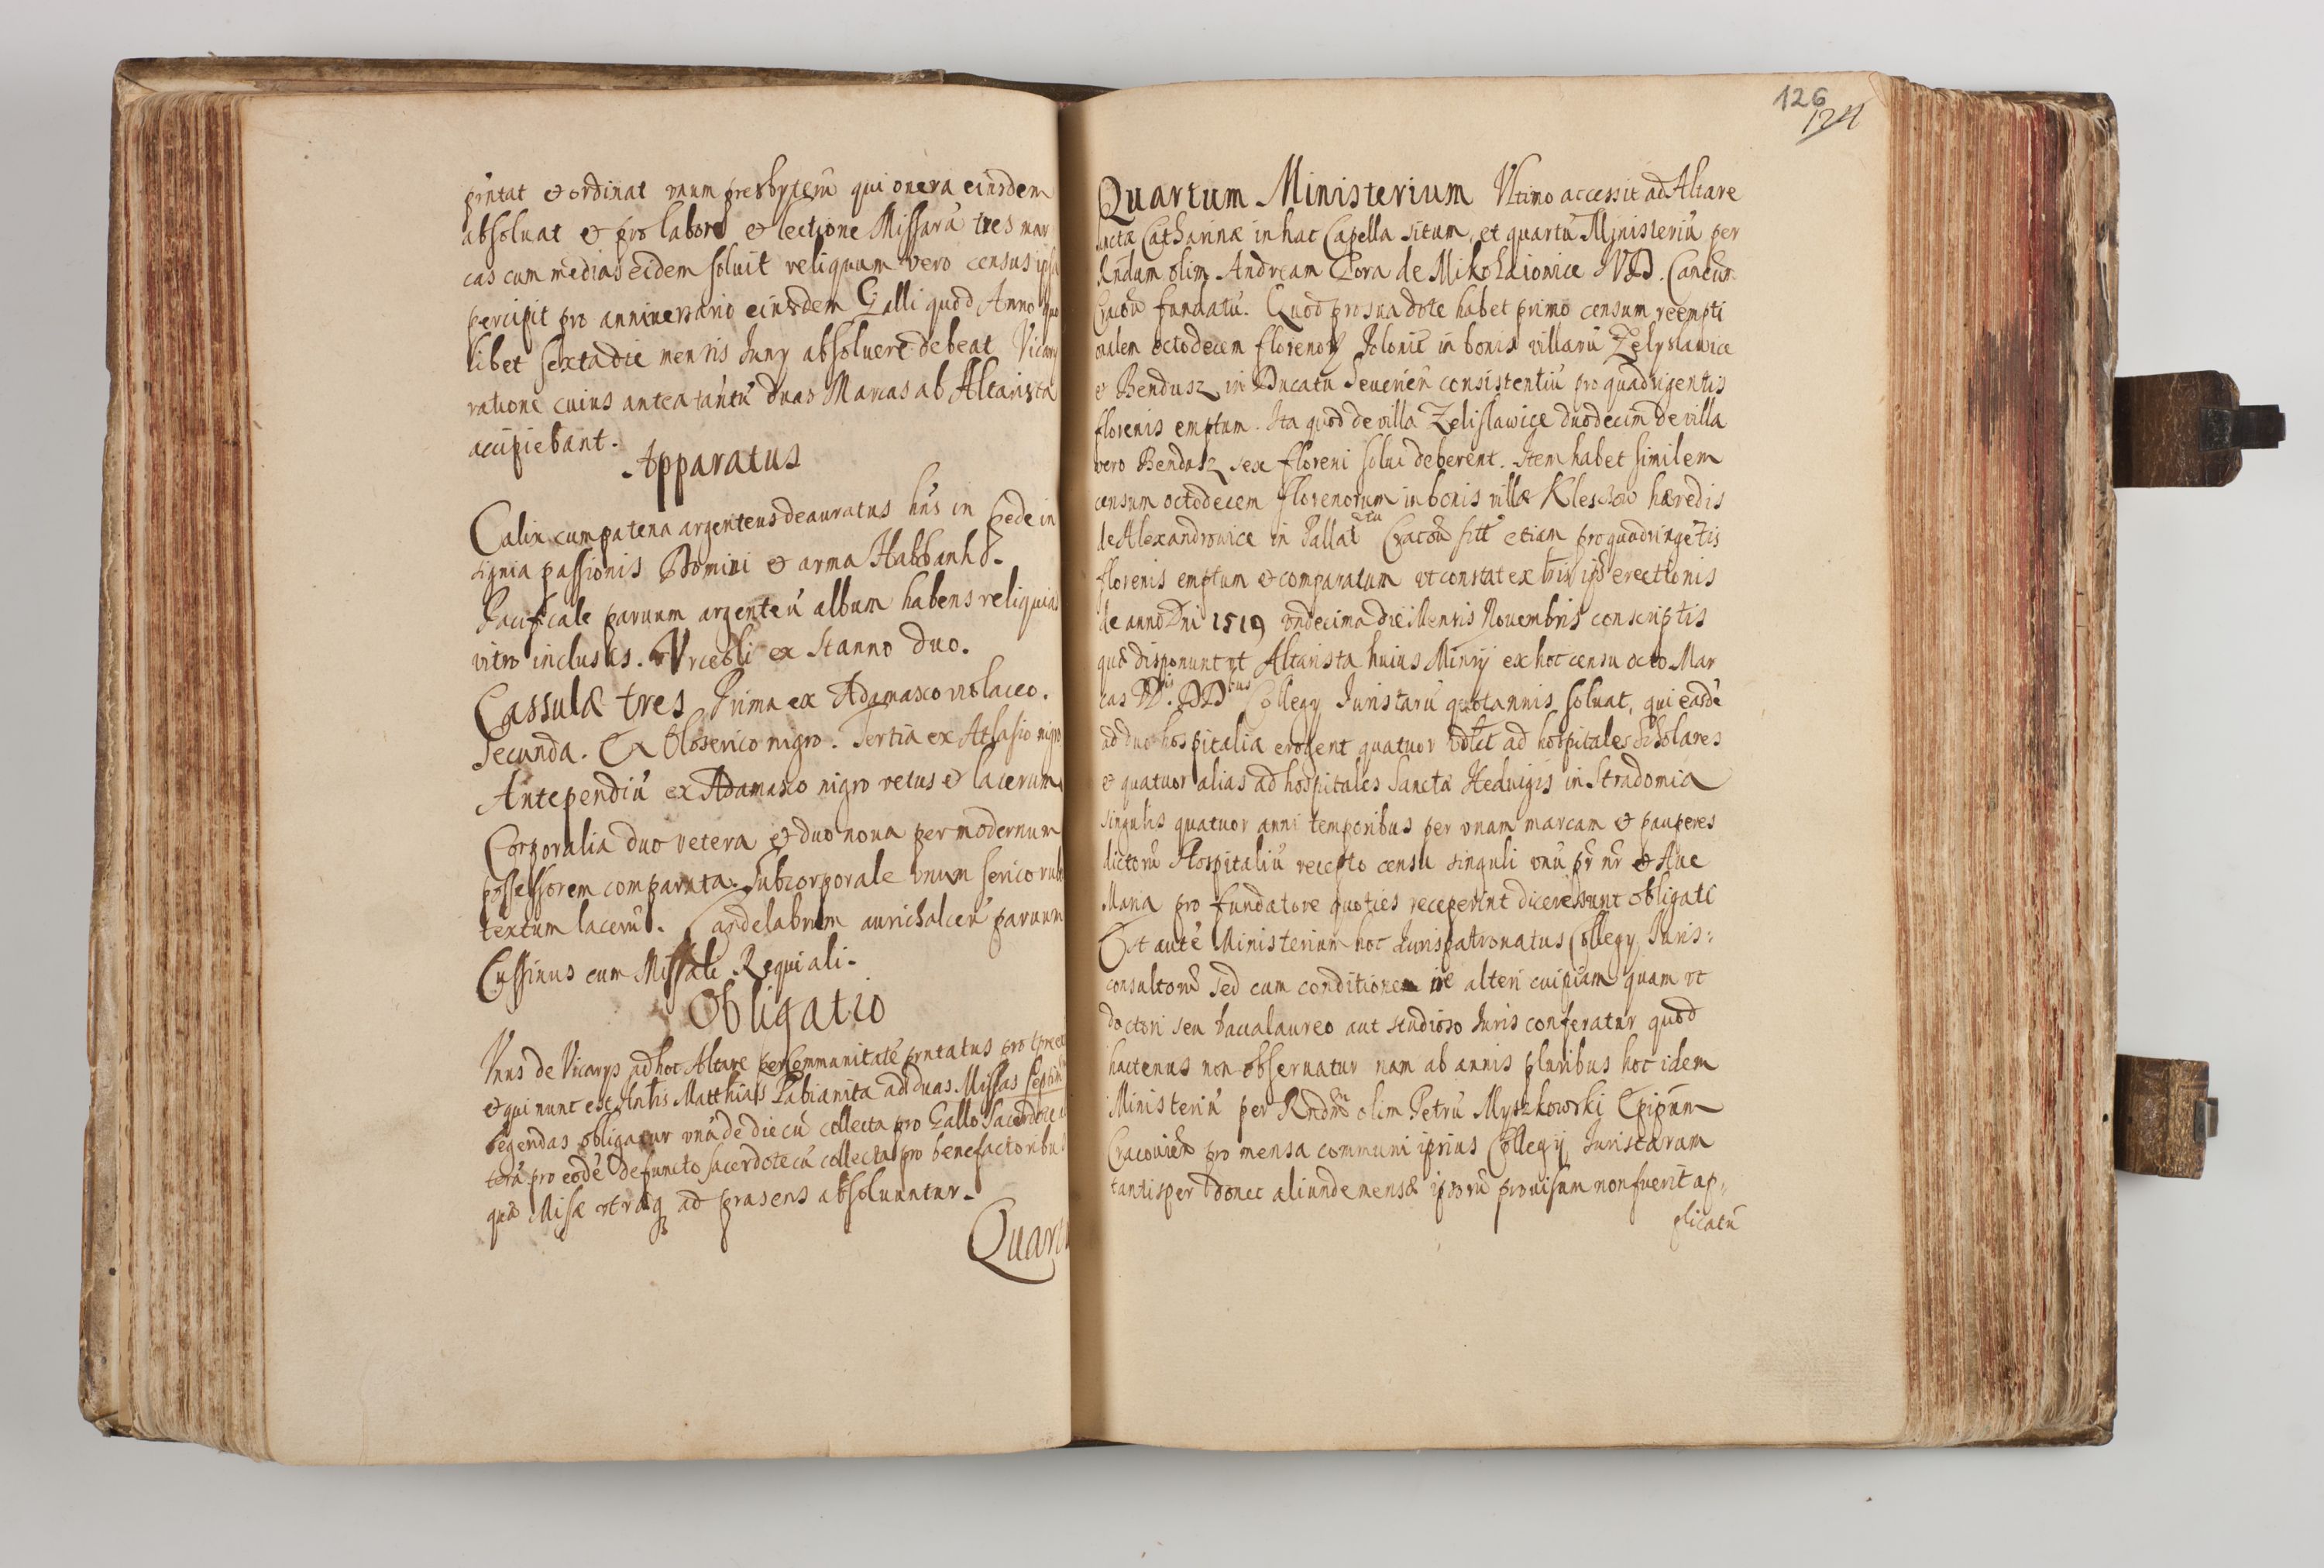 prntat et ordinat vnum presbyterũ qui onera eiusdem
absoluat et pro labore et lectione Missarũ tres mar
cas cum media eidem soluit reliquum vero census ipsa
percipit pro anniuersario eiusdem Galli quod Anno quo
libet sexta die mensis Iuny absoluere debeat Vicary
ratione cuius antea tantũ duas Marcas ab Altarista
acupiebant.
Apparatus
Calix cum patena argenteus deauratus hñs in pede in
signia passionis Domini et arma Habbank.
Pacificale paruum argenteũ album habens reliquias
vitro inclusas. Vrceoli ex Stanno duo.
Cassulæ tres Prima ex Adamasco violaceo.
Secunda. Ex Oloserico nigro. Tertia ex Atlasio nigro
Antependiũ ex Adamasco nigro vetus et lacerum
Corporalia duo vetera et duo noua per modernum
possessorem comparata. Subcorporale vnum serico rub
textum lacerũ. Candelabrum aurichalceũ paruum
Cussinus cum Missali Requiali.
Obligatio
Vnus de Vicarys ad hoc Altare per Communitatẽ prntatus pro tpre
et qui nunc est Matthias Pabianita ad duas Missas septim
legendas obligatur vnã de die cũ collecta pro Gallo Sacerdote
terã pro eodẽ defuncto sacerdote cũ collecta pro benefactoribus
quæ Misæ vtraq ad præsens absoluuntur.
Quart
126
124
Quartum Ministerium Vltimo accessit ad Altare
Sanctæ Catharinæ in hac Capella situm, et quartũ Ministeriũ per
Rndum olim Andream Gora de Mikołaiowice IVD. Cancũ
Cracou fundatũ. Quod pro sua dote habet primo censum reempti
onalem octodecem florenoꝝ Polonic in bonis villarũ Zelyslawice
et Bendusz in Ducatu Seuerieñ consistentiũ pro quadrigentis
florenis emptum. Ita quod de villa Zelislawice duodecim de villa
vero Bendusz sex floreni solui deberent. Item habet similem
censum octodecem florenorum in bonis villæ Kleszow hæredis
de Alexandrowice in Pallatⁱatu Cracou sitt etiam pro quadringẽtis
florenis emptum et comparatum vt constat ex lris ips erectionis
de anno Dni 1519 vndecima die Mensis Nouembris conscriptis
quæ disponunt vt Altarista huius Minrij ex hoc censu octo Mar
cas DDbus Collegy Iuristarũ quotannis soluat, qui easdẽ
ad duo hospitalia erogent quatuor vdlct ad hospitales Scholares
et quatuor alias ad hospitales Sanctæ Heduigis in Stradomia
singulis quatuor anni temporibus per vnam marcam et pauperes
dictorũ Hospitaliũ recepto censu singuli vnũ pr nr et Aue
Maria pro fundatore quoties receperint dicere sunt obligati
Est autẽ Ministerium hoc Iurispatronatus Collegy Iuris:
consultorũ sed cum conditione ne alteri cuipiam quam vt
doctori seu baccalaureo aut studioso Iuris conferatur quod
hactenus non obseruatur nam ab annis pluribus hoc idem
Ministeriũ per Rndũ olim Petrũ Myszkowski Epipum
Cracouieñ pro mensa communi ipsius Collegij Iuristarum
tantisper donec aliunde mensæ ipsorũ prouisum non fuerit ap,
plicatũ